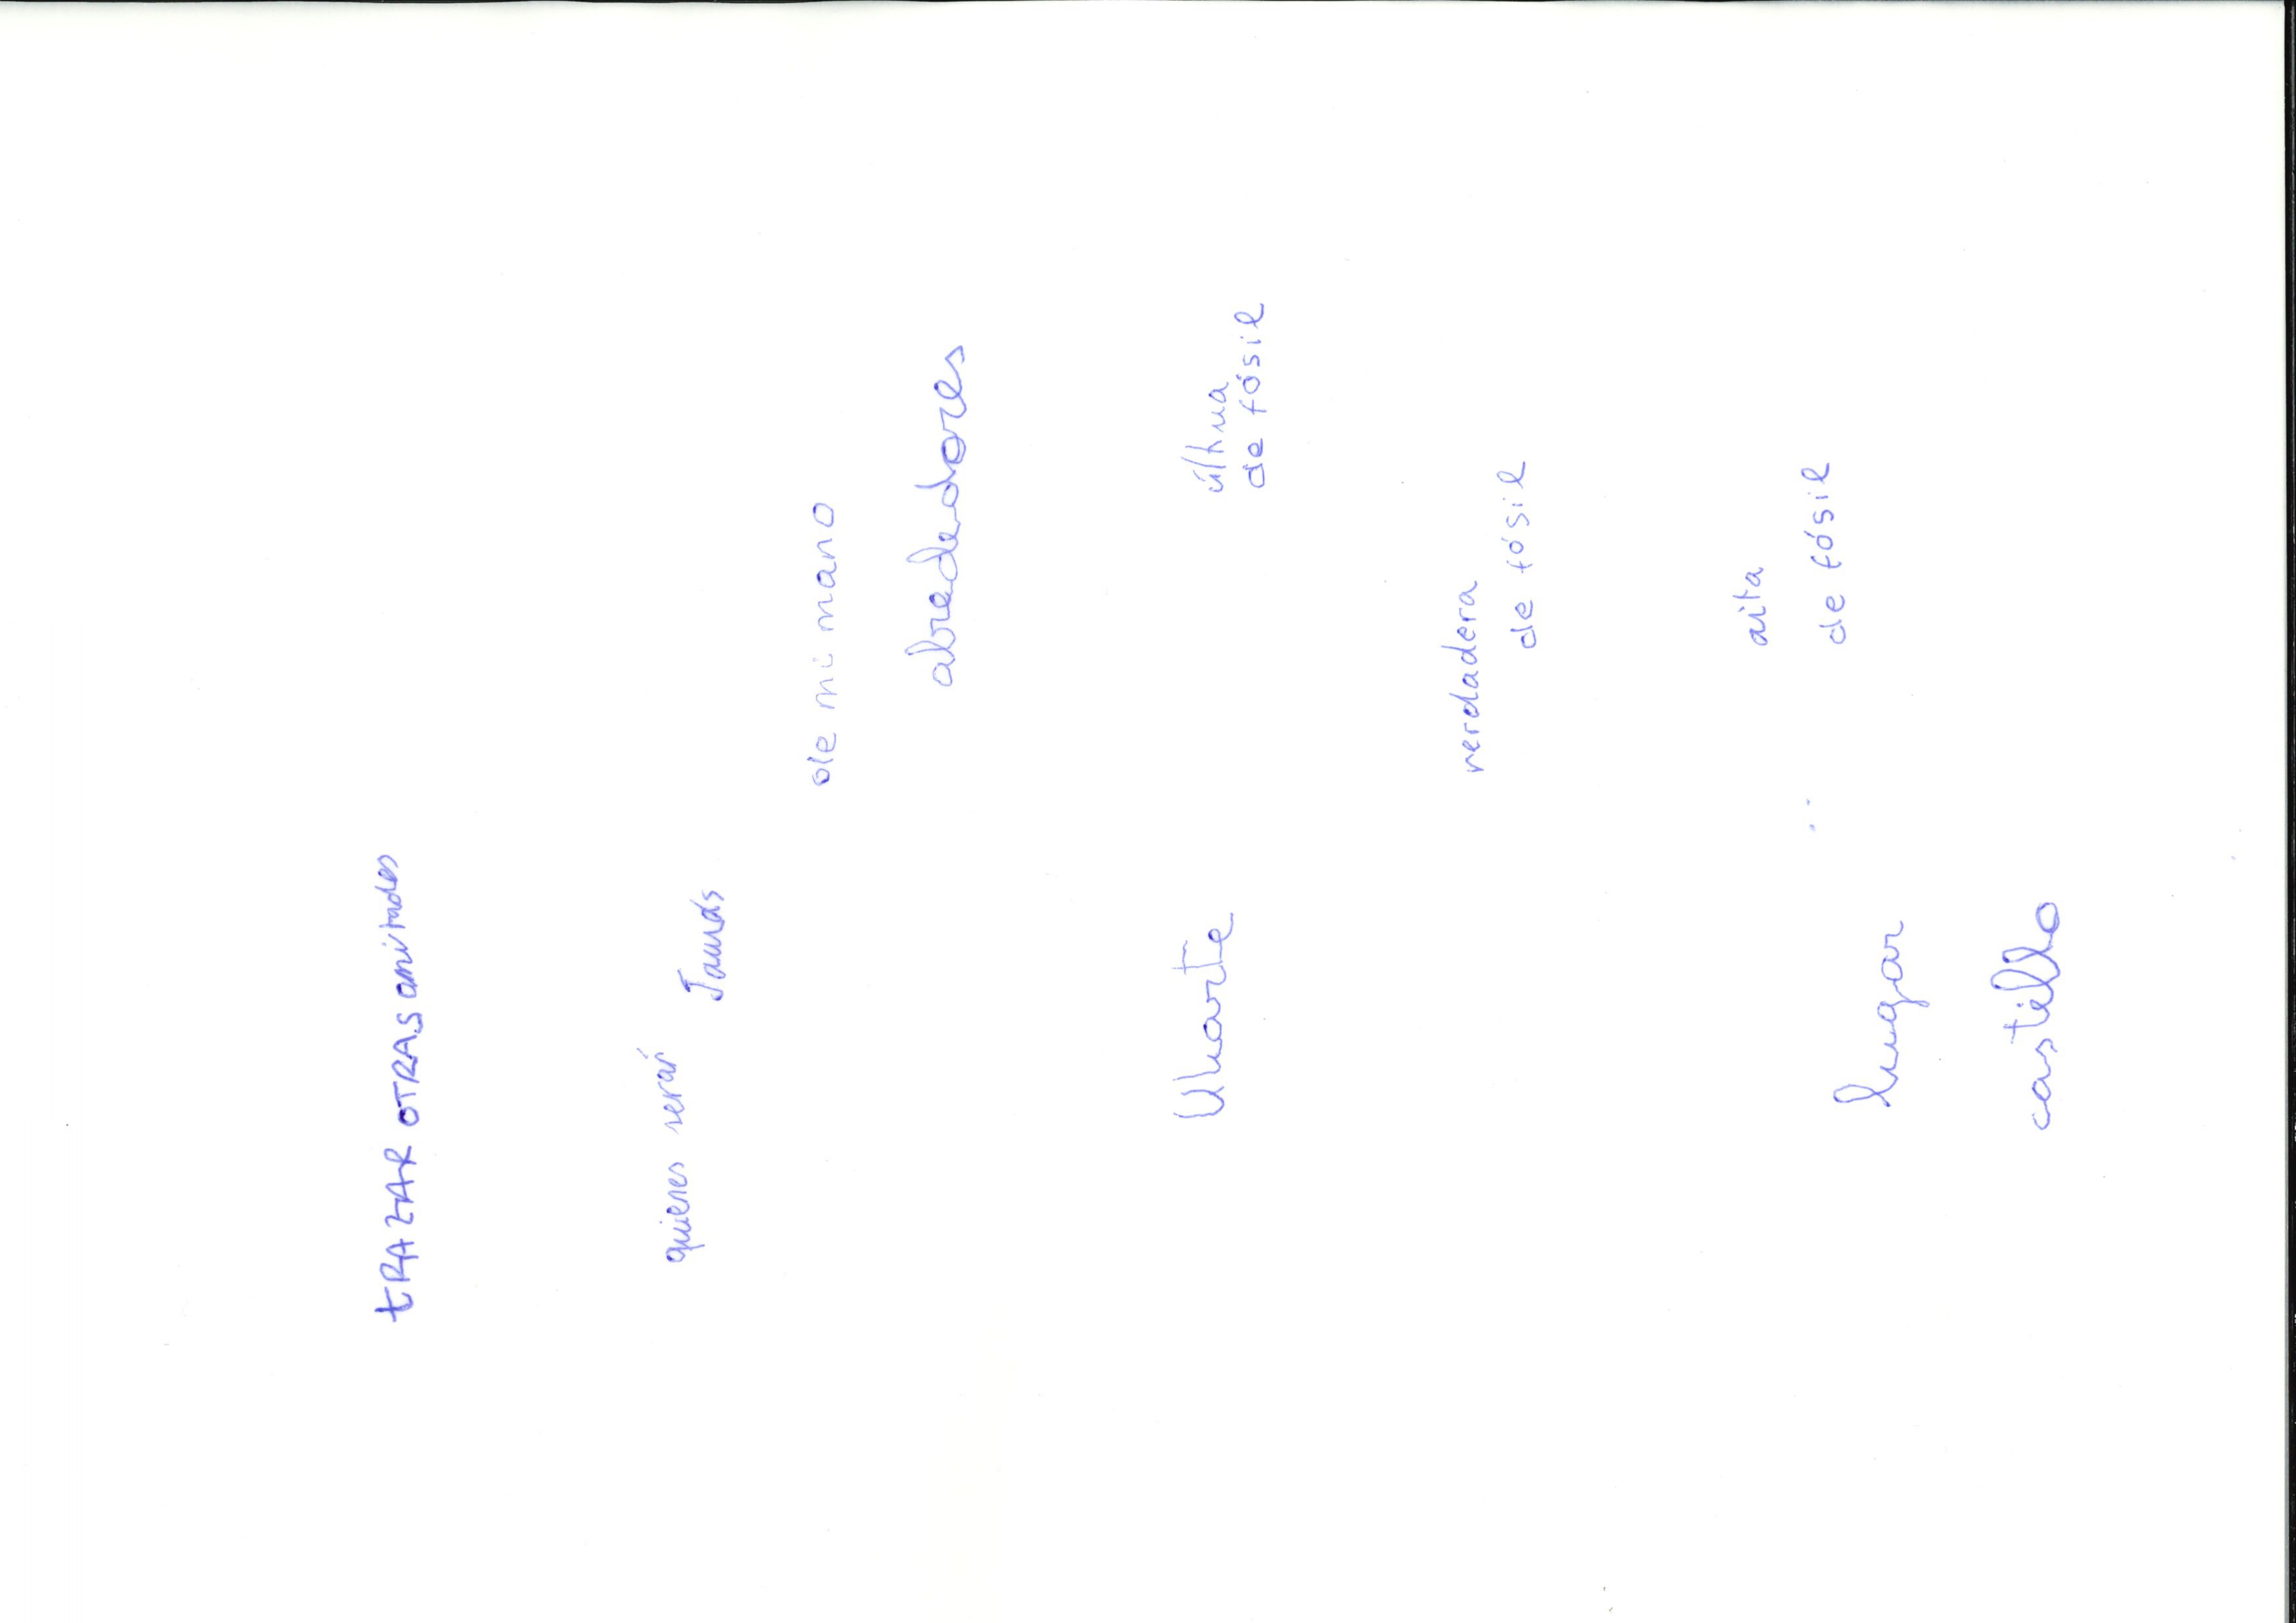 tRAZAR OTRAS amistades
quienes serán
Jamás
de mi mano
alrededores
Uharte
última
de fósil
verdadera
de fósil
aita
de fósil
lugar
castillo